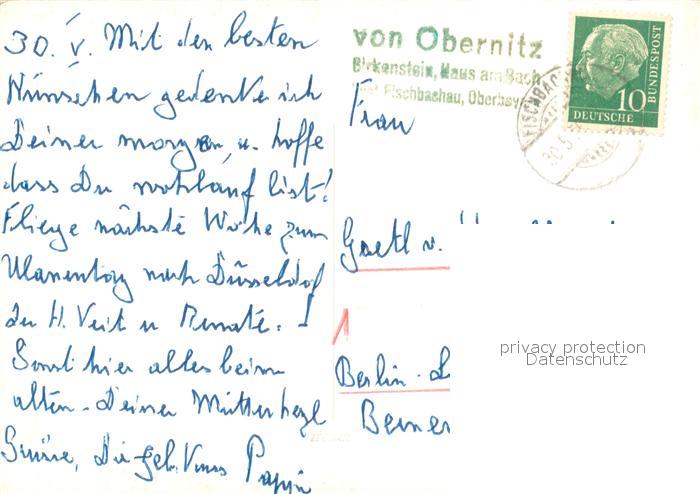 30. V. Mit den besten
Wünschen gedenke ich
Deiner morgen, u. hoffe
dass Du wohlauf bist!
Fliege nächste Woche zum
Ulanentag nach Düsseldorf
zu H. Veit u Renate. –
Sonst hier alles beim
alten. Deiner Mutter herzl
Grüsse, Dir
von Obernitz
Birkenstein, Haus am Bach
Fischbachau, Oberbay
Frau
v.
1
Berlin
DEUTSCHE
BUNDESPOST
10
FISCHBACH
30.5.
privacy protection
Datenschutz